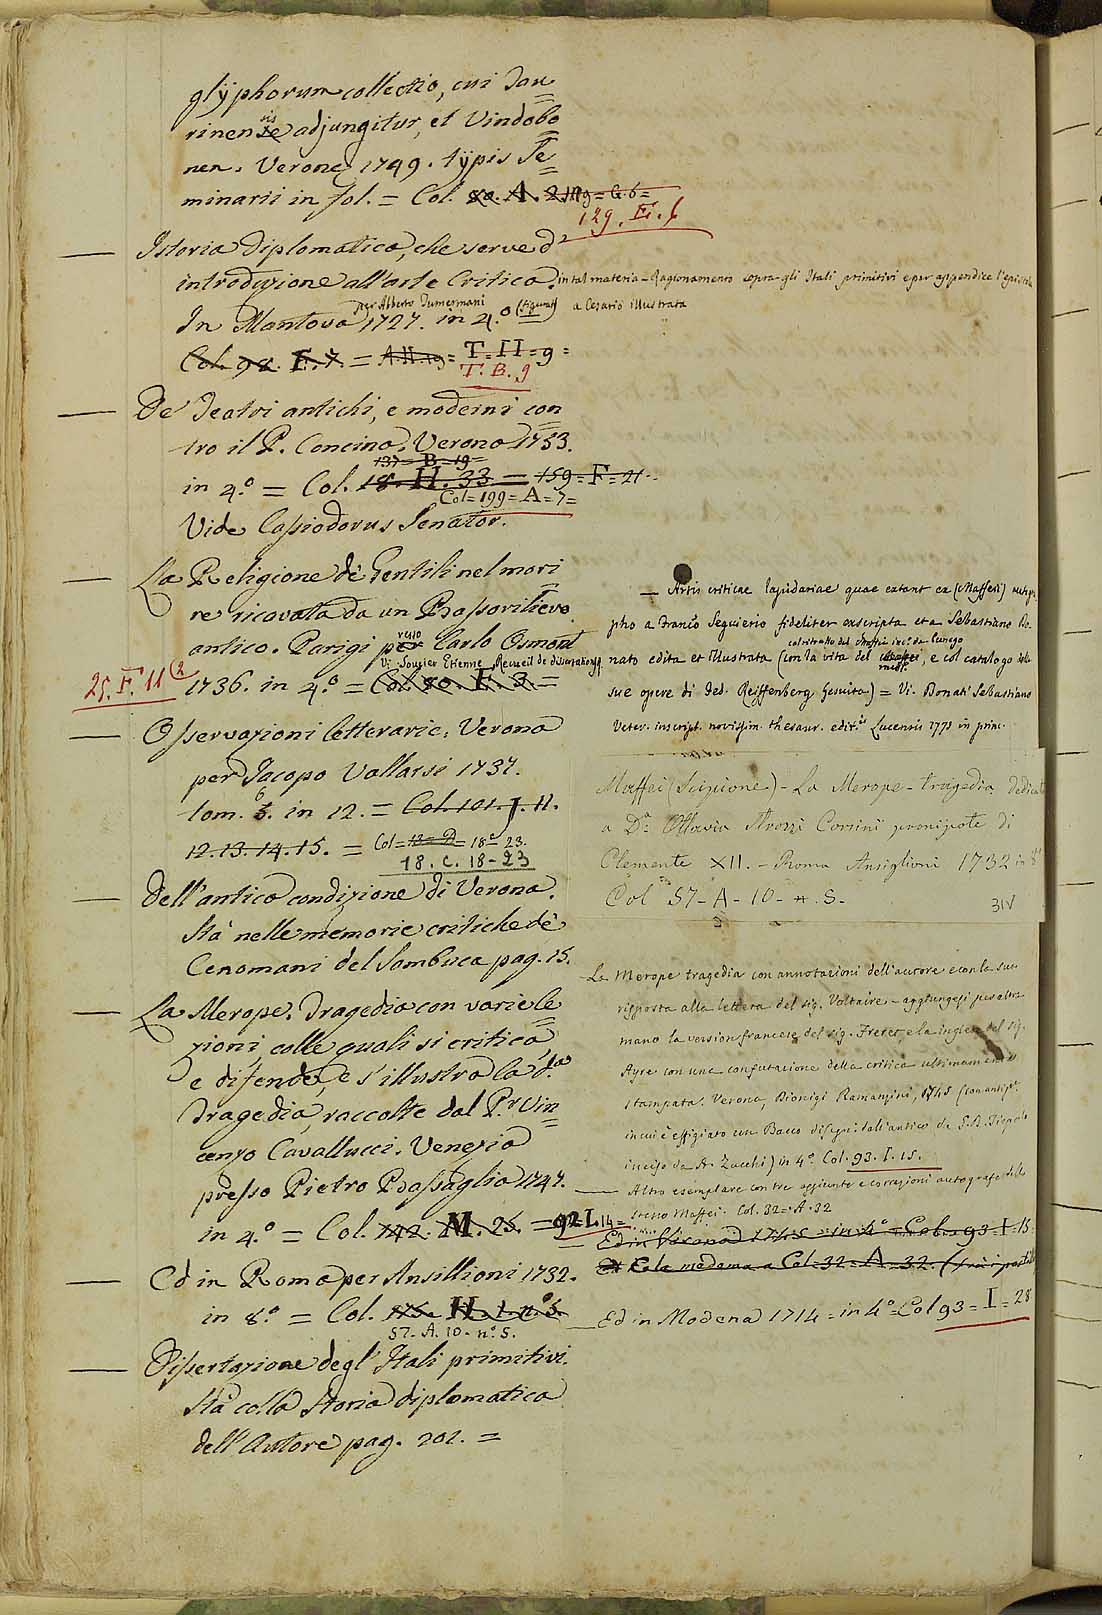 glÿphorum collectio, cui Tau=
rinensis adjungitur, et Vindobo=
nen. Veronę 1749. tÿpis Se=
minarii in fol. = Col. 80. A. 2.
129 = G. 6 =
129. E. 6
— Istoria Diplomatica, che serve d'
introduzione all'arte Critica in tal materia - Ragionamento sopra gli Itali primitivi e per appendice l'epistola
a Cesario illustrata
per Alberto Tumermani
In Mantova 1727. in 4.º (figurat)
Col. 98. F. 7. = A.II.19 = T = II = 9 =
T. B. 9
— De' Teatri antichi, e moderni con=
tro il P. Concina. Verona 1753.
137 = B = 19 =
in 4.º = Col. 18. H. 33 = 159 = F = 21
Col = 199 = A = 7 =
Vide Cassiodorus Senator.
— La Religione de' Gentili nel mori=
re ricavata da un Bassorilievo
antico. Parigi presso Carlo Osmont
Vi. Souciet Etienne, Recueil de dissertations
25. F. 11 (2
1736. in 4.º = Col. 80. F. 3 =
— Osservazioni letterarie. Verona
per Jacopo Vallarsi 1737.
tom. 6. in 12. = Col. 101. J. 11.
12. 13. 14. 15. = Col = 13 = D = 18 = 23.
18. C. 18-23
— Dell'antica condizione di Verona.
Sta nelle memorie critiche de'
Cenomani del Sambuca pag. 15.
— La Merope. Tragedia con varie le=
zioni, colle quali si critica,
e difende, e s'illustra la d.ª
Tragedia, raccolte dal P.r Vin=
cenzo Cavallucci. Venezia
presso Pietro Bassaglia 1747.
in 4.º = Col. 142. M. 25. = 92 I. 14 =
— Ed in Roma per Ansillioni 1732.
in 8.º = Col. 175. H. 1. nº 5.
57. A. 10 - nº 5.
— Dissertazione degl' Itali primitivi.
Sta colla Storia diplomatica
dell'Autore pag. 202. =
— Artis criticae lapidariae quae extant ex (Maffeii)
pho a Franc.º Seguierio fideliter exscripta et a Sebastiano Do=
col ritratto del Maffei inc. da Cunego
nato edita et illustrata (con la vita del med.º, e col catalogo delle
sue opere di Fed. Reiffenberg Gesuita) = Vi. Donati Sebastiano
Veter. inscript. novissim. thesaur. edit.is Lucensis 1775 in princ.
Maffei (Scipione) - La Merope - tragedia dedicat
a D.ª Ottavia Strozzi Corsini pronipote di
Clemente XII. - Roma Ansiglioni 1732 in 8º
Col 57 - A - 10 - n. 5.
31V
La Merope tragedia con annotazioni dell'autore e con la sua
risposta alla lettera del sig. Voltaire - aggiungesi per altra
mano la version francese del sig. Freret, e la inglese del sig.
Ayre con una confutazione della critica ultimamente
stampata. Verona, Dionigi Ramanzini, 1745 (con antip.
in cui è effigiato un Bacco disegn. dall'antico da G.B. Tiepolo
inciso da A. Zucchi) in 4º Col. 93. I. 15.
— Altro esemplare con tre aggiunte e correzioni autografe dello
stesso Maffei. Col. 32 = A = 32
Ed in Verona 1745 = in 4º = Col. 93 = I = 15
Et e la medema a Col. 32 = A = 32.
— Ed in Modena 1714 = in 4º = Col 93 = I = 28